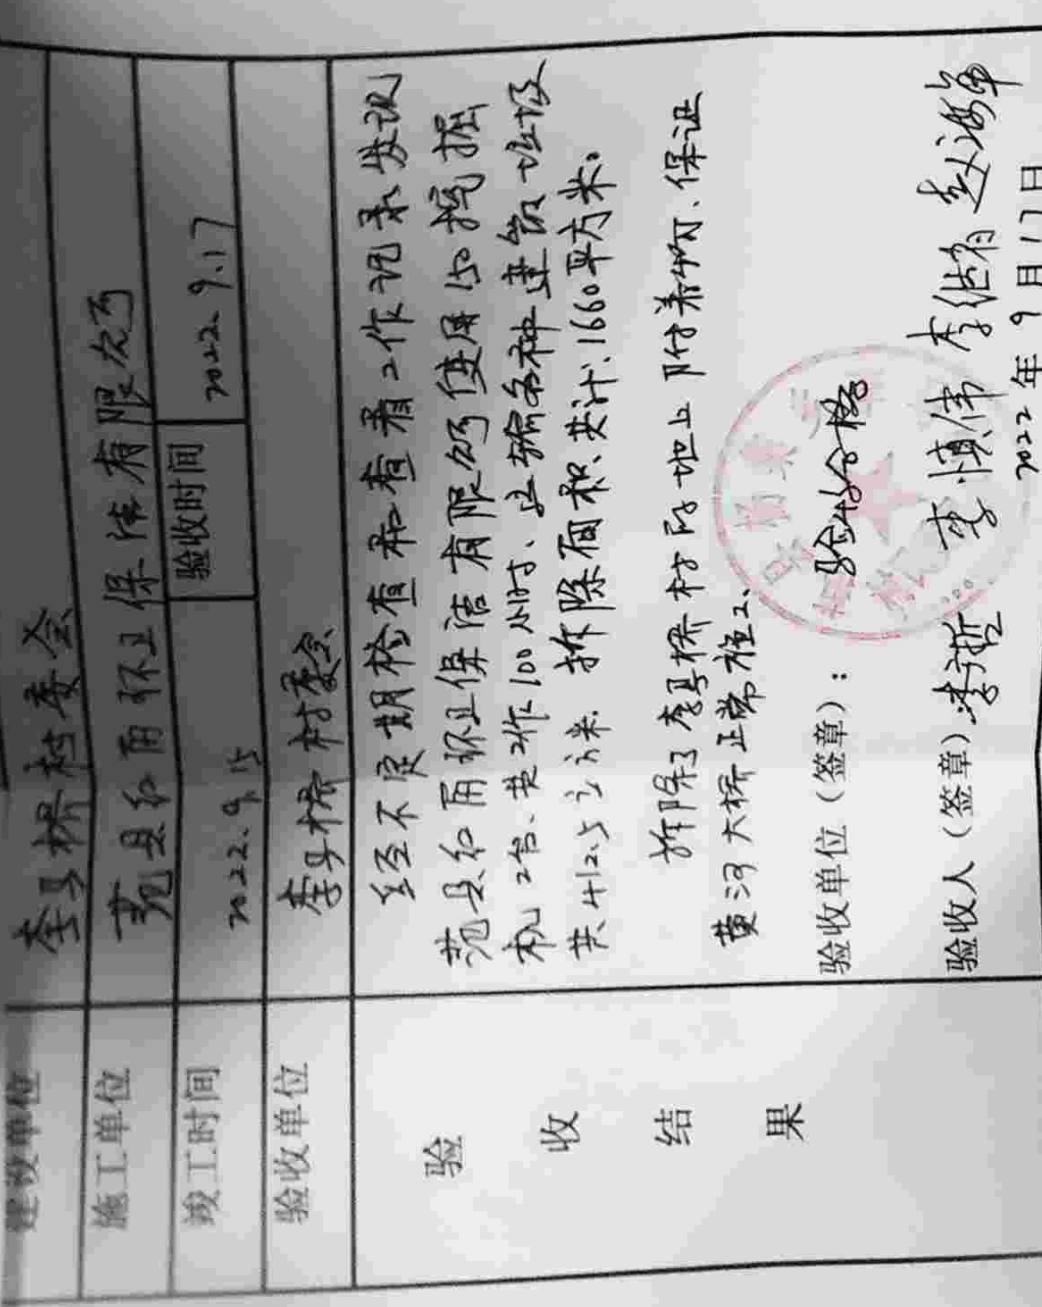 建设单位 李马桥村委会
施工单位 范县红雨环卫保洁有限公司
竣工时间 2022.9.15 验收时间 2022.9.17
验收单位 李马桥村委会
验收结果
经不定期检查和查看工作记录发现
范县红雨环卫保洁有限公司使用150挖掘
机2台、共工作100小时、运输各种建筑垃圾
共412.5立方米. 拆除面积、共计:1660平方米。
拆除了李马桥村的地上附着物、保证
黄河大桥正常施工、
验收单位（签章）： 验收合格
验收人（签章）： 李慎伟 李继有 赵海军
2022年9月17日